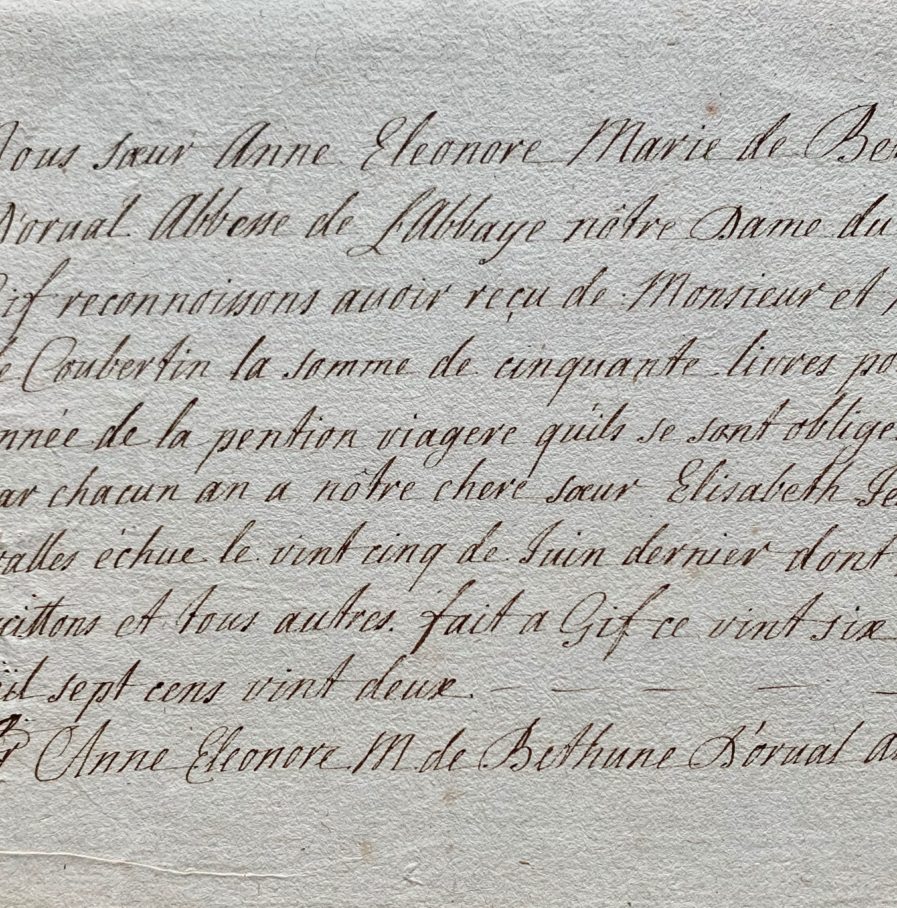 Nous sœur Anne Eleonore Marie de Be
D'orual Abbesse de L'Abbaye nôtre Dame du
Gif reconnoissons auoir reçu de Monsieur et
de Coubertin la somme de cinquante livres po
nnée de la pention viagere quils se sont oblige
ar chacun an a nôtre chere sœur Elisabeth Je
alles échue le vint cinq de Juin dernier dont
uittons et tous autres. fait a Gif ce vint six
il sept cens vint deux. — — — —
Sr Anne Eleonore M de Bethune D'orual a